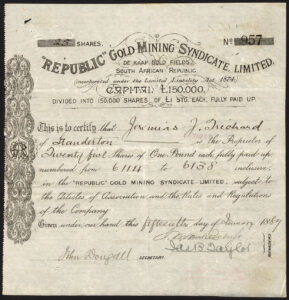 25 SHARES. No 957
"REPUBLIC" GOLD MINING SYNDICATE, LIMITED.
DE KAAP GOLD FIELDS,
SOUTH AFRICAN REPUBLIC.
(Incorporated under the Limited Liability Act 1874)
CAPITAL £150,000,
DIVIDED INTO 150,000 SHARES OF £1 STG. EACH, FULLY PAID UP.
This is to certify that Jeremias J. Trichard
of Standerton is the Proprietor of
Twenty five Shares of One Pound each, fully paid up,
numbered from 6114 to 6138 inclusive,
in the "REPUBLIC" GOLD MINING SYNDICATE LIMITED, subject to
the Articles of Association and the Rules and Regulations
of the Company
Given under our hand this fifteenth day of January 1887
John Dougall SECRETARY. Jas. B. Taylor